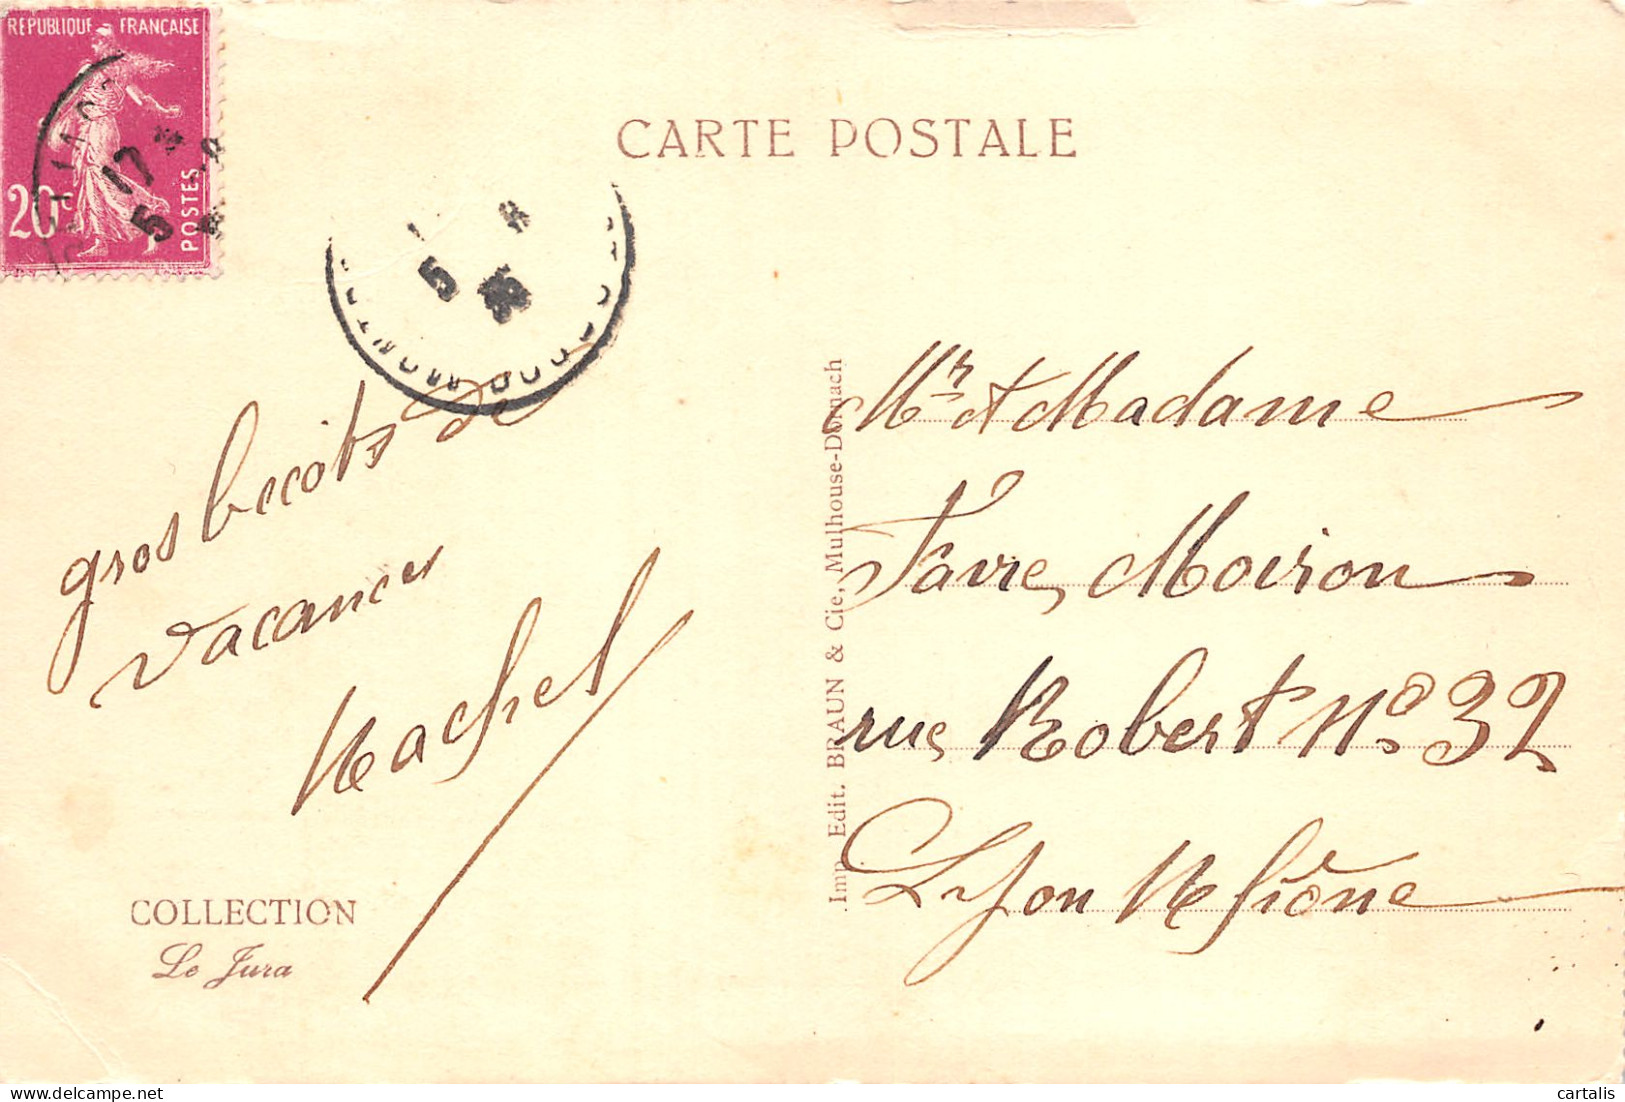 REPUBLIQUE FRANÇAISE
20c
POSTES
17
5
CARTE POSTALE
5
35
gros becôts de
vacances
Rachel
COLLECTION
Le Jura
Imp. Edit. BRAUN & Cie, Mulhouse-Dornach
Mr & Madame
Favre Moiron
rue Robert No 32
Lyon Rhône
cartalis